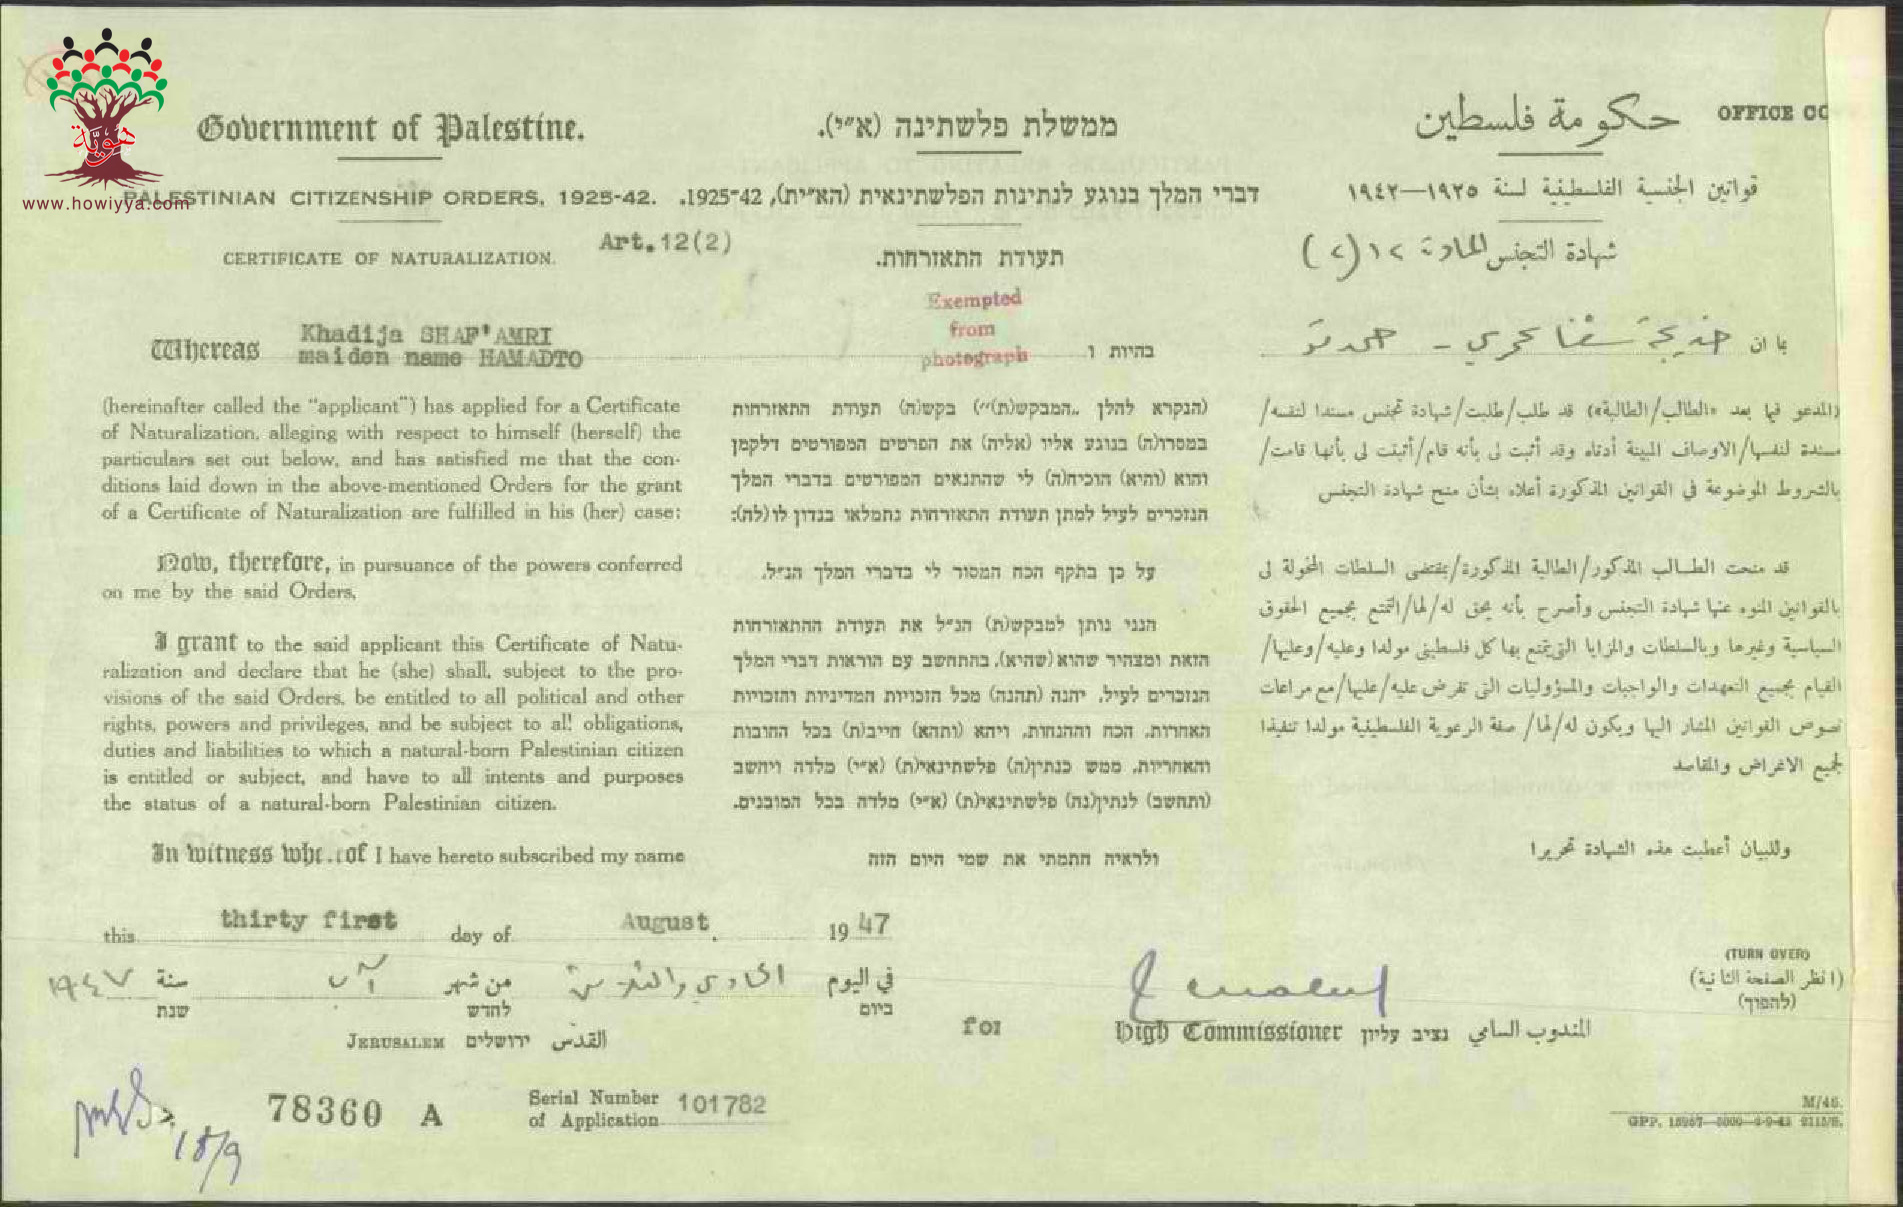 هويّة
www.howiyya.com
OFFICE CO
Government of Palestine.
PALESTINIAN CITIZENSHIP ORDERS, 1925-42.
CERTIFICATE OF NATURALIZATION.
Art.12(2)
Whereas Khadija SHAF'AMRI
maiden name HAMADTO
(hereinafter called the "applicant") has applied for a Certificate
of Naturalization, alleging with respect to himself (herself) the
particulars set out below, and has satisfied me that the con-
ditions laid down in the above-mentioned Orders for the grant
of a Certificate of Naturalization are fulfilled in his (her) case:
Now, therefore, in pursuance of the powers conferred
on me by the said Orders,
I grant to the said applicant this Certificate of Natu-
ralization and declare that he (she) shall, subject to the pro-
visions of the said Orders, be entitled to all political and other
rights, powers and privileges, and be subject to all obligations,
duties and liabilities to which a natural-born Palestinian citizen
is entitled or subject, and have to all intents and purposes
the status of a natural-born Palestinian citizen.
In witness whe..of I have hereto subscribed my name
ממשלת פלשתינה (א״י).
דברי המלך בנוגע לנתינות הפלשתינאית (הא״ית), 1925-42.
תעודת התאזרחות.
Exempted
from
photograph
בהיות ו
(הנקרא להלן „המבקש(ת)״) בקש(ה) תעודת התאזרחות
במסרו(ה) בנוגע אליו (אליה) את הפרטים המפורטים דלקמן
והוא (והיא) הוכיח(ה) לי שהתנאים המפורטים בדברי המלך
הנזכרים לעיל למתן תעודת התאזרחות נתמלאו בנדון לו(לה):
על כן בתקף הכח המסור לי בדברי המלך הנ״ל,
הנני נותן למבקש(ת) הנ״ל את תעודת ההתאזרחות
הזאת ומצהיר שהוא (שהיא), בהתחשב עם הוראות דברי המלך
הנזכרים לעיל, יהנה (תהנה) מכל הזכויות המדיניות והזכויות
האחרות, הכח וההנחות, ויהא (ותהא) חייב(ת) בכל החובות
והאחריות, ממש כנתין(ה) פלשתינאי(ת) (א״י) מלדה ויחשב
(ותחשב) לנתין(נה) פלשתינאי(ת) (א״י) מלדה בכל המובנים.
ולראיה חתמתי את שמי היום הזה
حكومة فلسطين
قوانين الجنسية الفلسطينية لسنة ١٩٢٥—١٩٤٢
شهادة التجنس المادة ١٢ (٢)
بما ان خديجة شفا عمري - حمدتو
(المدعو فيما بعد «الطالب/الطالبة») قد طلب/طلبت/شهادة تجنس مسندا لنفسه/
مسندة لنفسها/الاوصاف المبينة أدناه وقد أثبت لي بأنه قام/أثبتت لي بأنها قامت/
بالشروط الموضوعة في القوانين المذكورة أعلاه بشأن منح شهادة التجنس
قد منحت الطالب المذكور/الطالبة المذكورة/بمقتضى السلطات المخولة لي
بالقوانين المنوه عنها شهادة التجنس وأصرح بأنه يحق له/لها/التمتع بجميع الحقوق
السياسية وغيرها وبالسلطات والمزايا التي يتمتع بها كل فلسطيني مولدا وعليه/وعليها/
القيام بجميع التعهدات والواجبات والمسؤوليات التي تفرض عليه/عليها/مع مراعات
نصوص القوانين المشار اليها ويكون له/لها/ صفة الرعوية الفلسطينية مولدا تنفيذا
لجميع الاغراض والمقاصد
وللبيان أعطيت هذه الشهادة تحريرا
this thirty first day of August 1947
في اليوم الحادي والثلاثين من شهر آب سنة ١٩٤٧
ביום לחדש שנת
JERUSALEM ירושלים القدس
for High Commissioner נציב עליון المندوب السامي
(TURN OVER)
(انظر الصفحة الثانية)
(להפוך)
78360 A
Serial Number
of Application 101782
18/9
M/46.